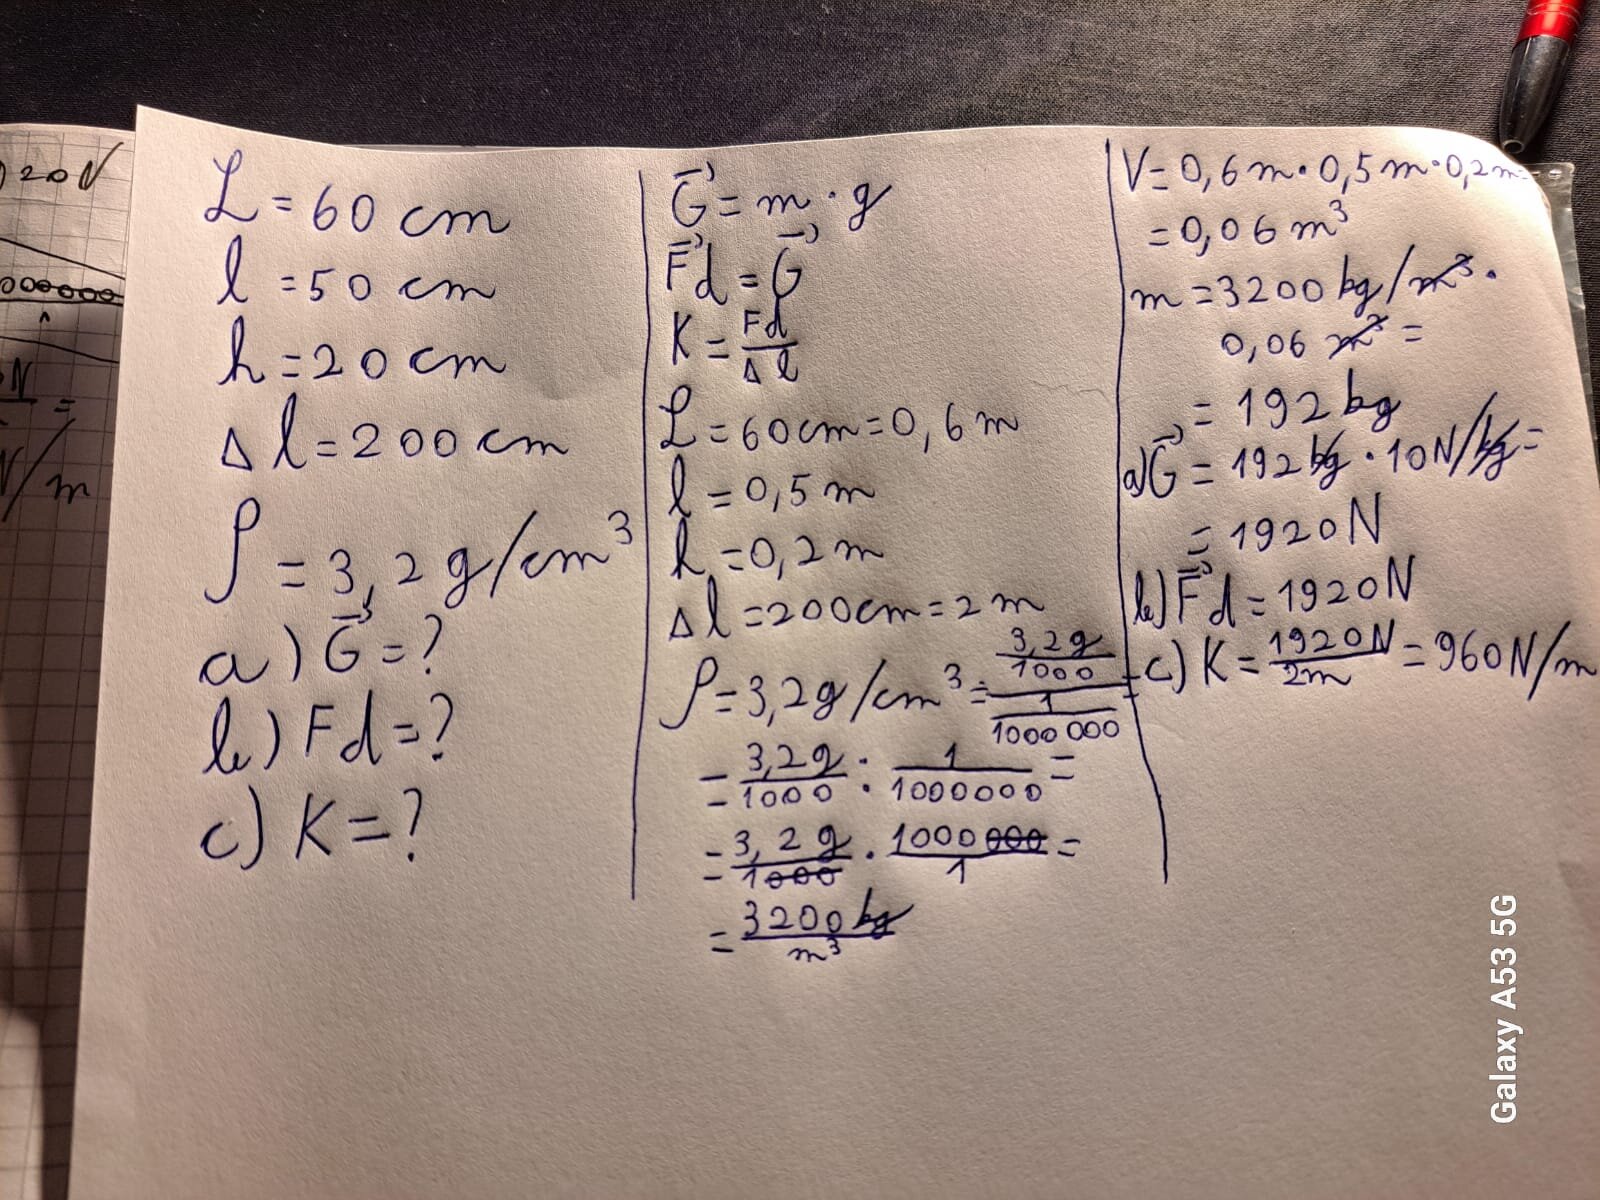 020N
000000
N
=
N/m
L = 60 cm
l = 50 cm
h = 20 cm
Δl = 200 cm
ρ = 3,2 g/cm³
a) G⃗ = ?
b) Fd = ?
c) K = ?
G⃗ = m · g
F⃗d = G⃗
K = Fd / Δl
L = 60cm = 0,6 m
l = 0,5 m
h = 0,2 m
Δl = 200cm = 2 m
ρ = 3,2g/cm³ = 3,2g/1000 / 1/1000 000 =
= 3,2g/1000 : 1/1000000 =
= 3,2 g/1000 · 1000 000/1 =
= 3200 kg/m³
V = 0,6 m · 0,5 m · 0,2 m =
= 0,06 m³
m = 3200 kg/m³ ·
0,06 m³ =
= 192 kg
a) G⃗ = 192 kg · 10 N/kg =
= 1920 N
b) F⃗d = 1920 N
c) K = 1920N/2m = 960 N/m
Galaxy A53 5G